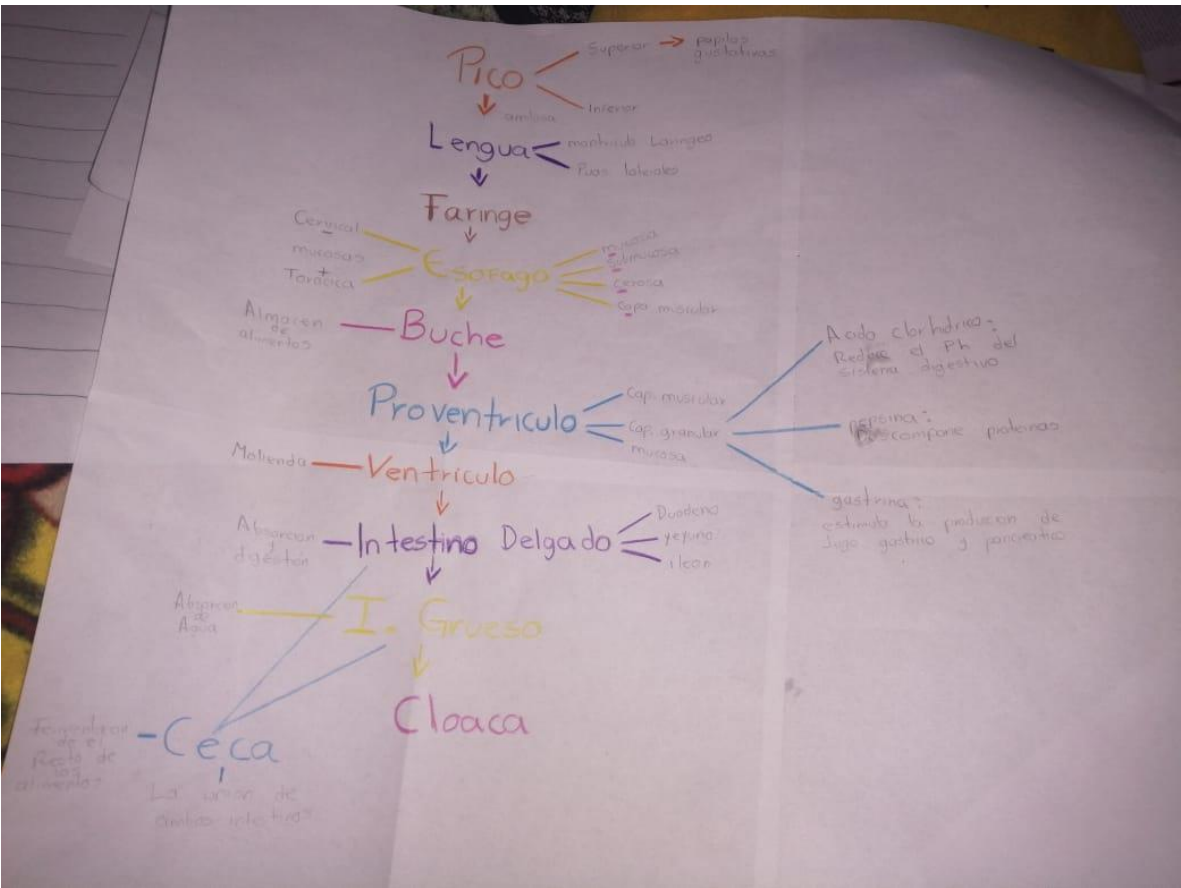 Pico
Superior → papilas
gustativas
Inferior
Lengua
montículo Laringeo
Puas laterales
Faringe
Cervical
mucosas
+
Torácica
Esofago
mucosa
Submucosa
Cerosa
Capa muscular
Almacen
de
alimentos
Buche
Proventriculo
Cap. muscular
Cap. granular
mucosa
Acido clorhidrico:
el Ph del
sistema digestivo
pepsina:
Descompone proteinas
gastrina:
estimula la producion de
Jugo gastrico y pancreatico
Molienda
Ventriculo
Absorcion
y
digestion
Intestino Delgado
Duodeno
yeyuno
ileon
Absorcion
de
Agua
I. Grueso
Cloaca
Ceca
de el
Resto de
los
alimentos
La union de
ambos intestinos